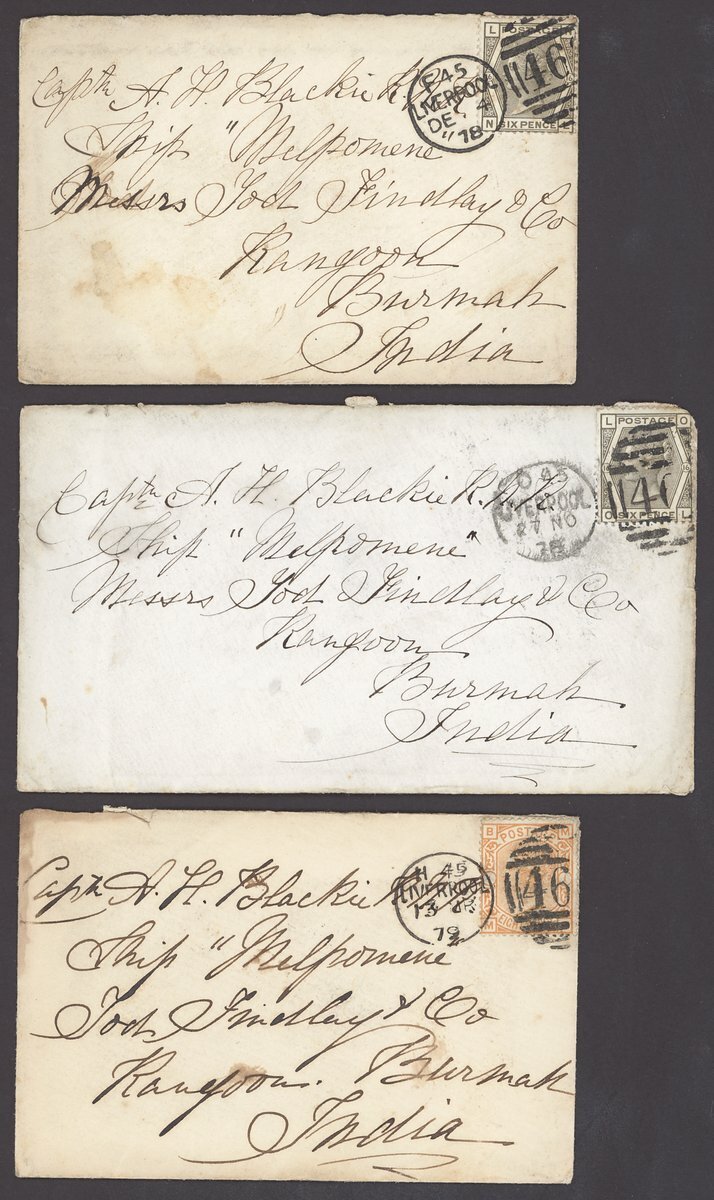 Captn A. H. Blackie R.
Ship "Melpomene"
Messrs Tod Findlay & Co
Rangoon
Burmah
India
F 45
LIVERPOOL
DE 4
78
L POSTAGE
N SIX PENCE E
46
Captn A. H. Blackie R.N.R.
Ship "Melpomene"
Messrs Tod Findlay & Co
Rangoon
Burmah
India
O 45
LIVERPOOL
27 NO
78
L POSTAGE O
O SIX PENCE L
46
Captn A. H. Blackie
Ship "Melpomene"
Tod Findlay & Co
Rangoon. Burmah
India
H 45
LIVERPOOL
13
79
B POSTAGE M
M EIGHT
46